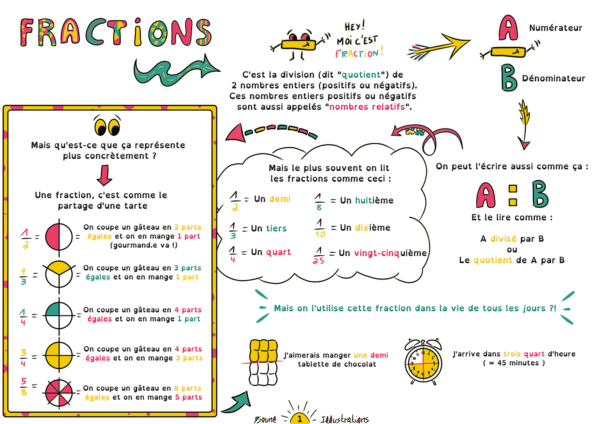 FRACTIONS
HEY!
MOI C'EST
FRACTION!
C'est la division (dit "quotient") de
2 nombres entiers (positifs ou négatifs).
Ces nombres entiers positifs ou négatifs
sont aussi appelés "nombres relatifs".
A Numérateur
B Dénominateur
Mais qu'est-ce que ça représente
plus concrètement ?
Une fraction, c'est comme le
partage d'une tarte
1/2 = On coupe un gâteau en 2 parts
égales et on en mange 1 part
(gourmand.e va !)
1/3 = On coupe un gâteau en 3 parts
égales et on en mange 1 part
1/4 = On coupe un gâteau en 4 parts
égales et on en mange 1 part
3/4 = On coupe un gâteau en 4 parts
égales et on en mange 3 parts
5/8 = On coupe un gâteau en 8 parts
égales et on en mange 5 parts
Mais le plus souvent on lit
les fractions comme ceci :
1/2 = Un demi
1/8 = Un huitième
1/3 = Un tiers
1/10 = Un dixième
1/4 = Un quart
1/25 = Un vingt-cinquième
On peut l'écrire aussi comme ça :
A : B
Et le lire comme :
A divisé par B
ou
Le quotient de A par B
Mais on l'utilise cette fraction dans la vie de tous les jours ?!
J'aimerais manger une demi
tablette de chocolat
J'arrive dans trois quart d'heure
( = 45 minutes )
1
Illustrations